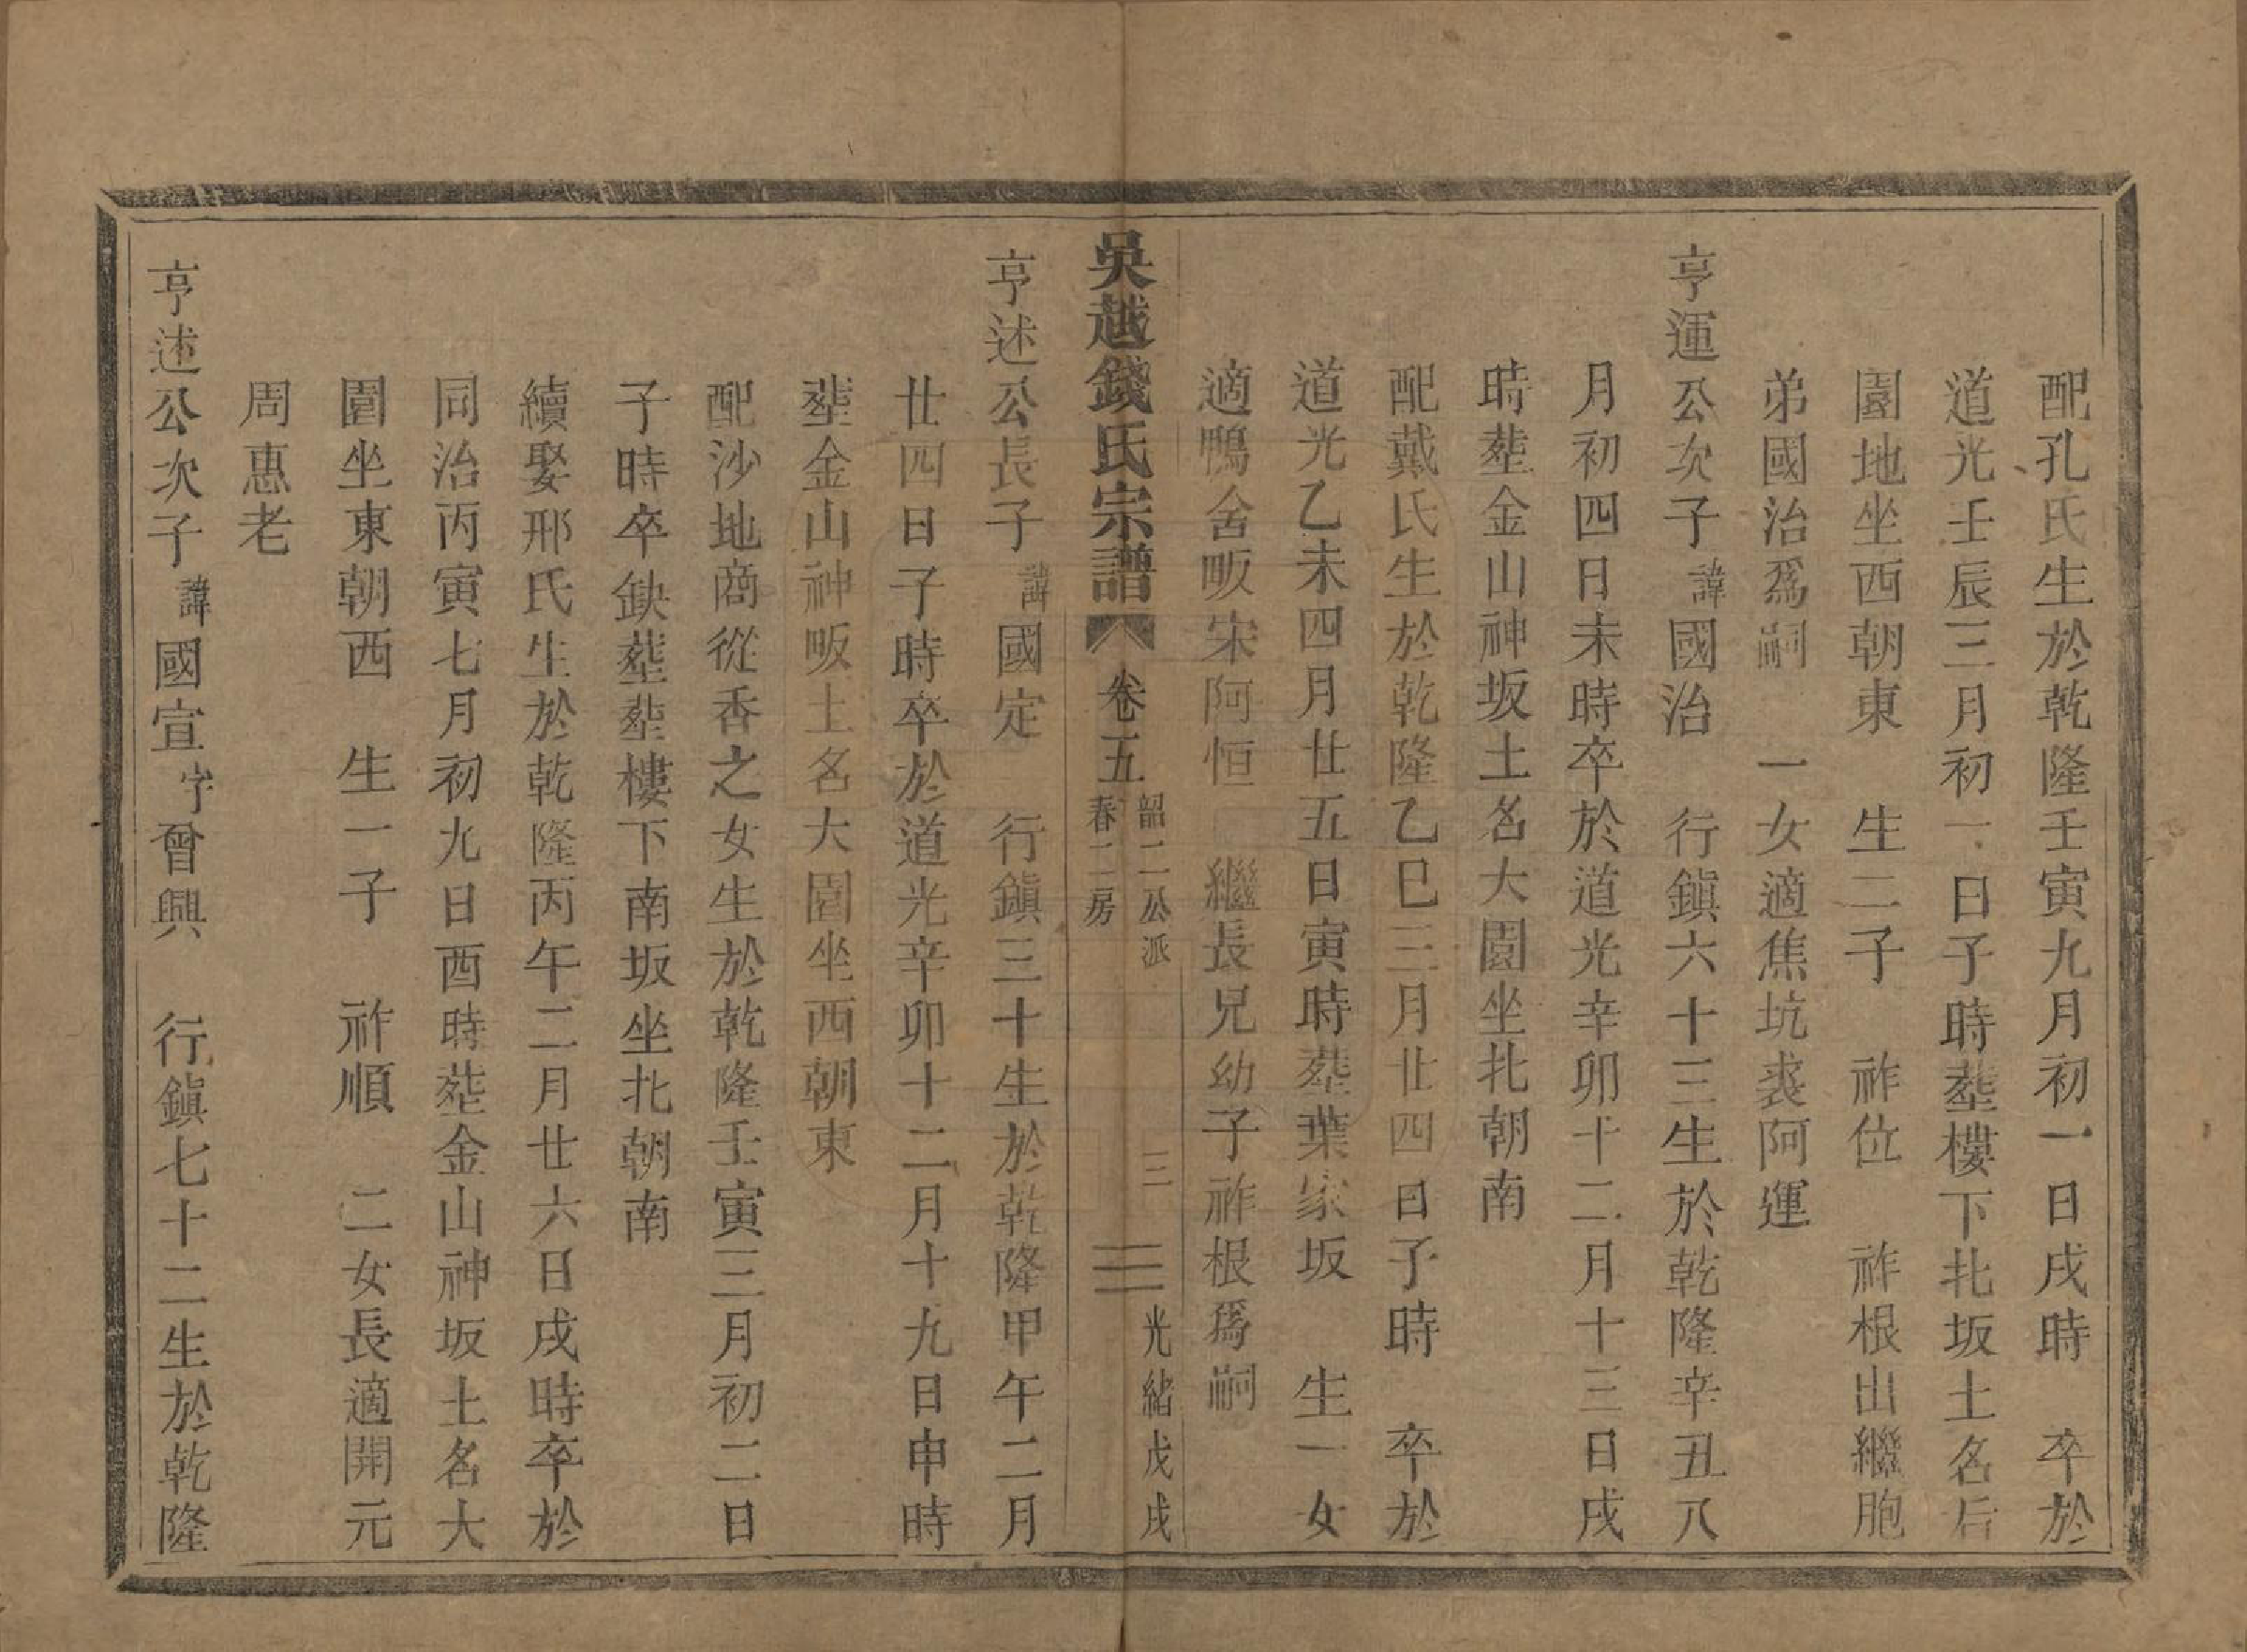 配孔氏生於乾隆壬寅九月初一日戌時　卒於
道光壬辰三月初一日子時塟樓下北坂土名后
園地坐西朝東　生二子　祚位　祚根出繼胞
弟國治爲嗣　一女適焦坑裘阿運
亨運公次子諱國治　行鎭六十三生於乾隆辛丑八
月初四日未時卒於道光辛卯十二月十三日戌
時塟金山神坂土名大園坐北朝南
配戴氏生於乾隆乙巳三月廿四日子時　卒於
道光乙未四月廿五日寅時塟葉家坂　生一女
適鴨舍畈宋阿恒　繼長兄幼子祚根爲嗣
吳越錢氏宗譜　卷五　韶二公派　春二房　三　光緒戊戌
亨述公長子諱國定　行鎭三十生於乾隆甲午二月
廿四日子時卒於道光辛卯十二月十九日申時
塟金山神畈土名大園坐西朝東
配沙地商從香之女生於乾隆壬寅三月初二日
子時卒缺塟塟樓下南坂坐北朝南
續娶邢氏生於乾隆丙午二月廿六日戌時卒於
同治丙寅七月初九日酉時塟金山神坂土名大
園坐東朝西　生一子　祚順　二女長適開元
周惠老
亨述公次子諱國宣字曾興　行鎭七十二生於乾隆